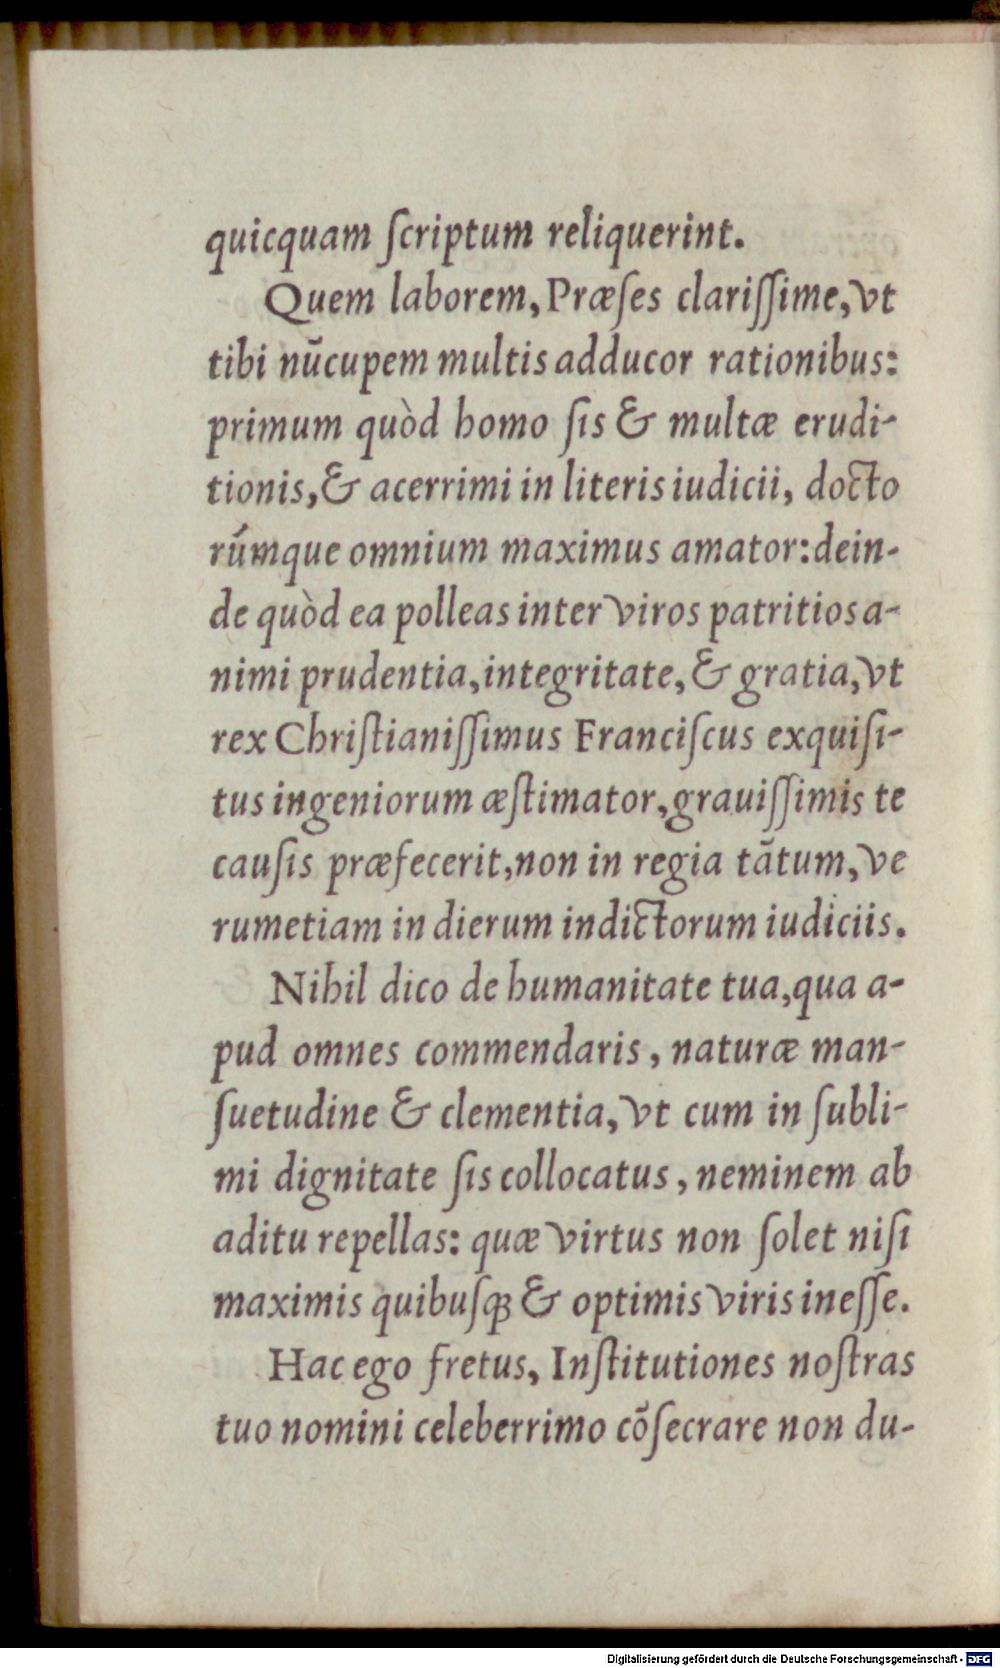 quicquam ſcriptum reliquerint.
Quem laborem, Præſes clariſſime, vt
tibi nūcupem multis adducor rationibus:
primum quòd homo ſis & multæ erudi-
tionis, & acerrimi in literis iudicii, docto
rúmque omnium maximus amator: dein-
de quòd ea polleas inter viros patritios a-
nimi prudentia, integritate, & gratia, vt
rex Chriſtianiſſimus Franciſcus exquiſi-
tus ingeniorum æſtimator, grauiſſimis te
cauſis præfecerit, non in regia tātum, ve
rumetiam in dierum indictorum iudiciis.
Nihil dico de humanitate tua, qua a-
pud omnes commendaris, naturæ man-
ſuetudine & clementia, vt cum in ſubli-
mi dignitate ſis collocatus, neminem ab
aditu repellas: quæ virtus non ſolet niſi
maximis quibuſꝗ & optimis viris ineſſe.
Hac ego fretus, Inſtitutiones noſtras
tuo nomini celeberrimo cōſecrare non du-
Digitalisierung gefördert durch die Deutsche Forschungsgemeinschaft - DFG